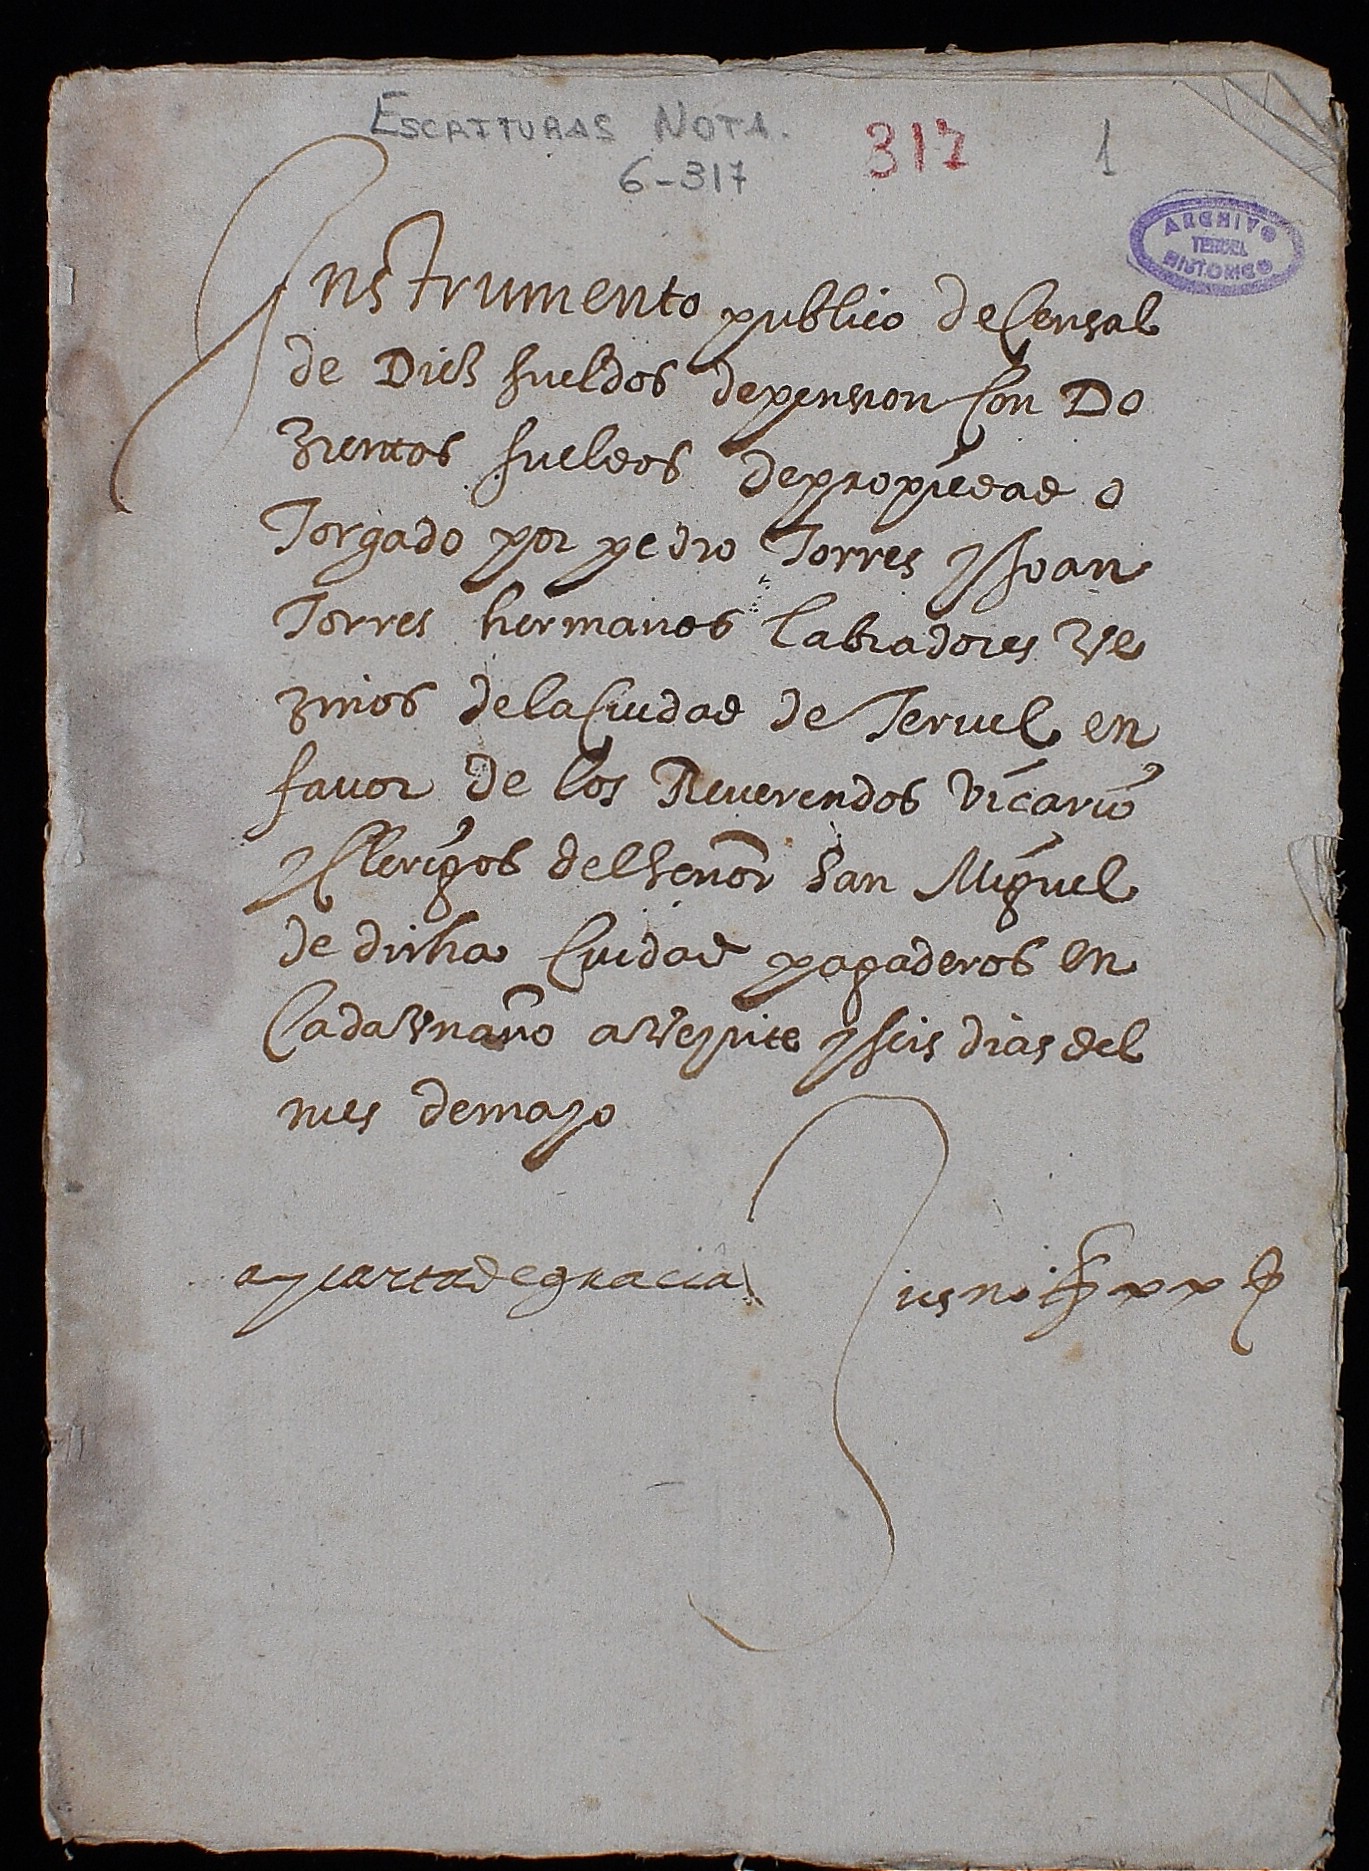 ESCRITURAS NOTA.
6-317
317
1
ARCHIVO
TERUEL
HISTORICO
Instrumento publico de Censal
de Diez sueldos de pension Con Do
zientos sueldos de propiedad o
Torgado por pedro Torres y Joan
Torres hermanos Labradores Ve
zinos de la Ciudad de Teruel en
favor de los Reverendos Vicario
y Clerigos del Señor San Miguel
de dicha Ciudad pagaderos en
Cada Vn año a Veynte y seis dias del
mes de mayo
ay carta de gracia